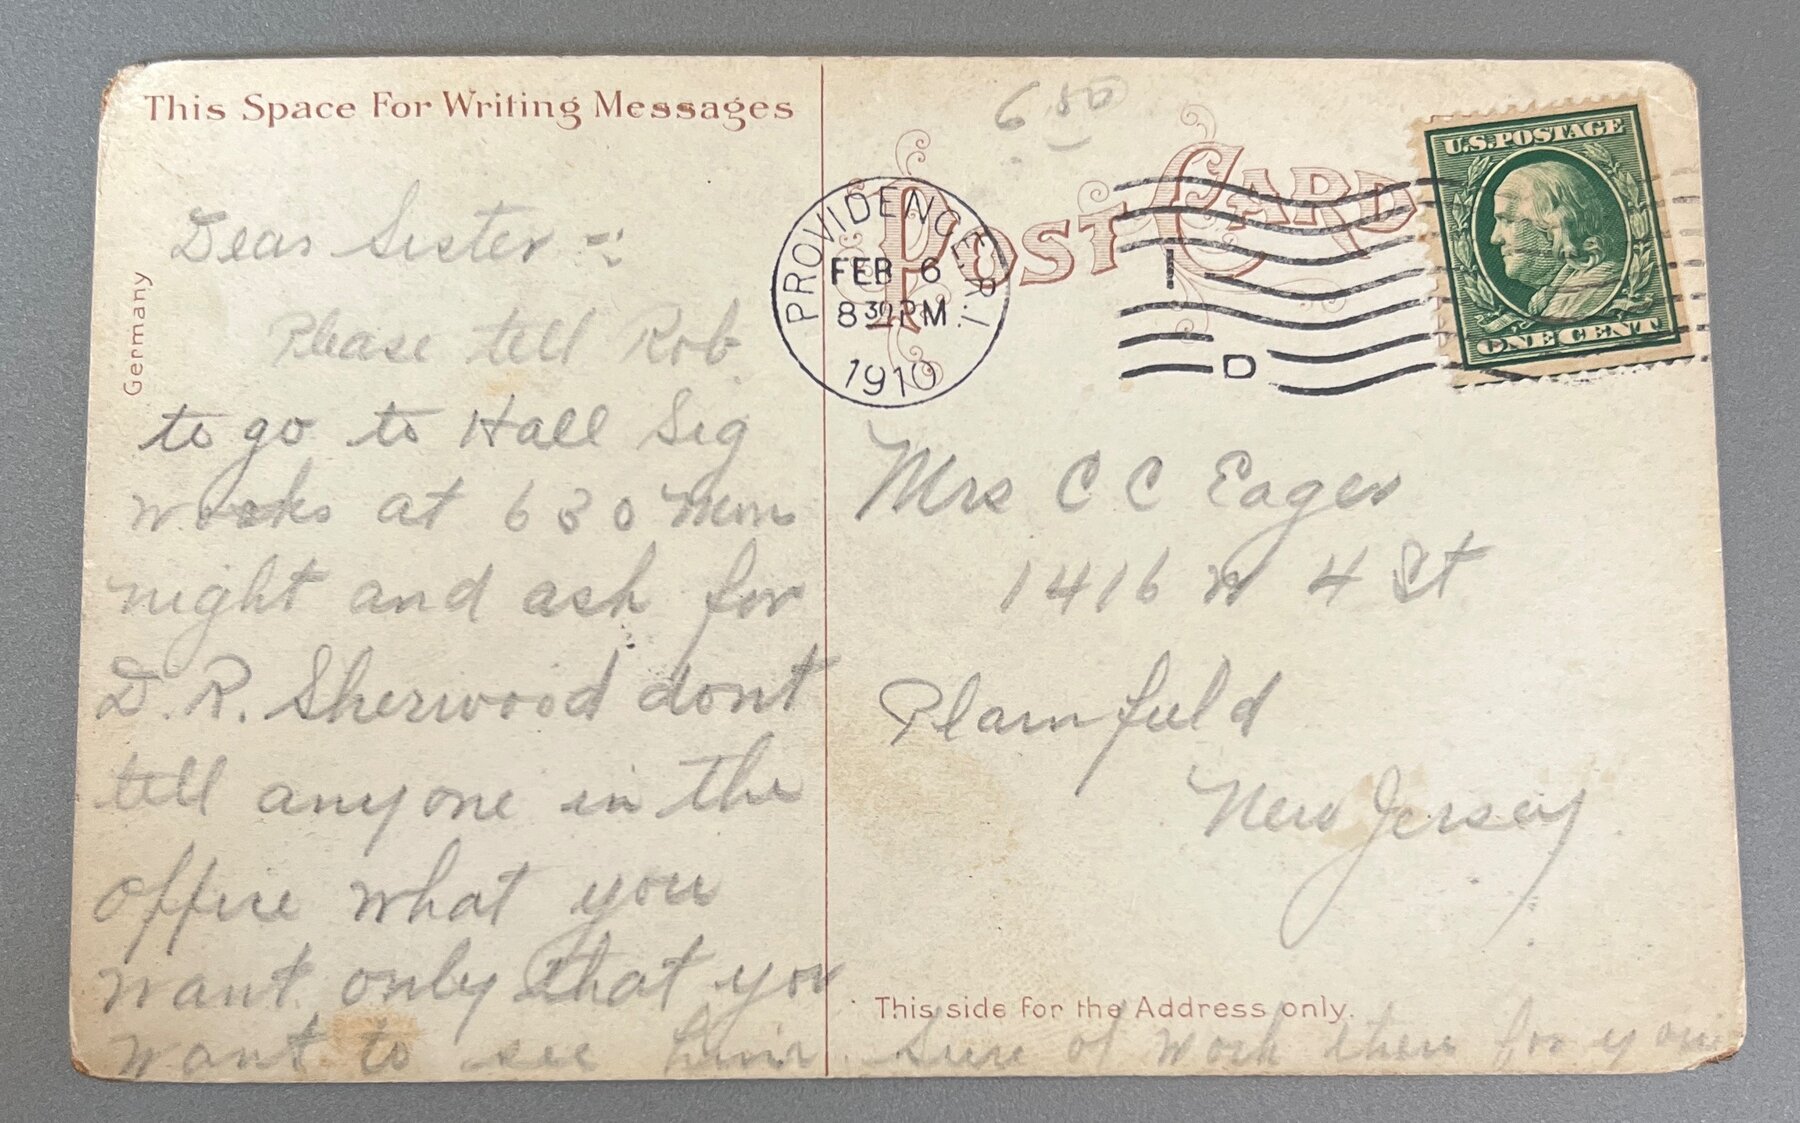 This Space For Writing Messages
Germany
Dear Sister -:
Please tell Rob
to go to Hall Sig
Works at 630 Mon
night and ask for
D. R. Sherwood dont
tell anyone in the
office what you
want only that you
want to see him. Sure of work then for you
6 50
POST CARD
PROVIDENCE, R.I.
FEB 6
8 30 PM
1910
1
D
U.S. POSTAGE
ONE CENT
Mrs C C Eager
1416 W 4 St
Plainfield
New Jersey
This side for the Address only.